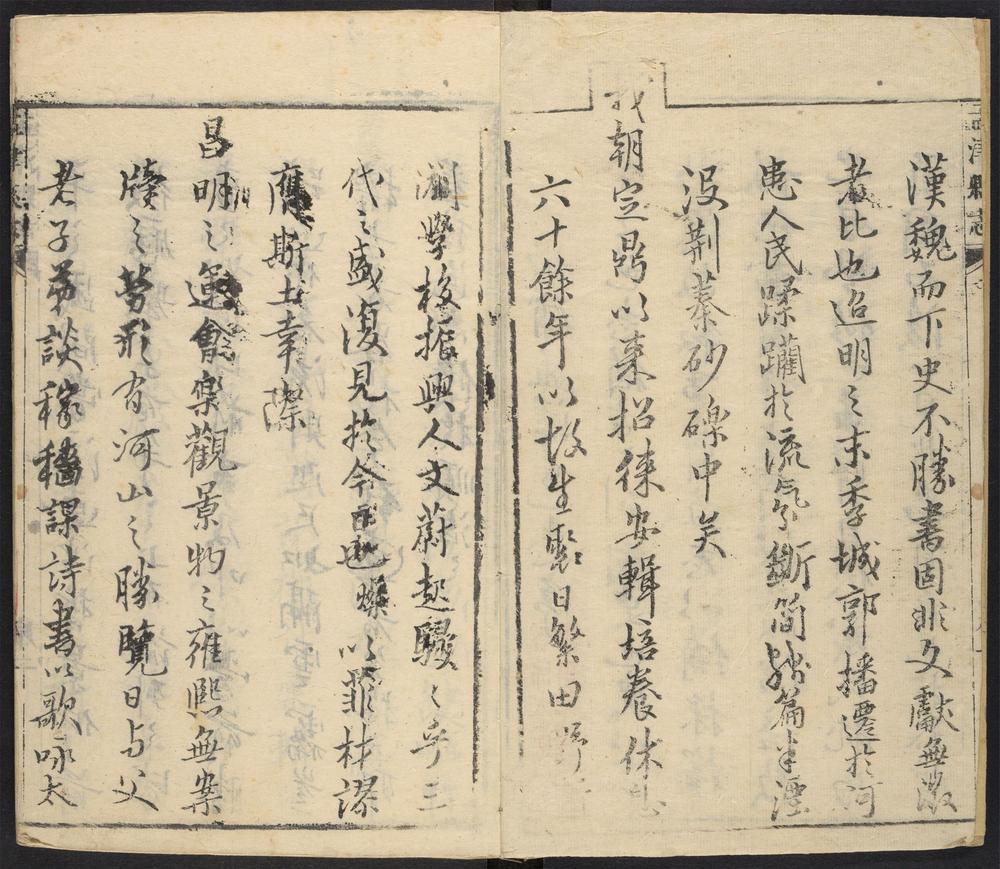 漢魏而下史不勝書固非文獻無徵
者比也迨明之末季城郭播遷於河
患人民蹂躪於流氛斷簡殘篇半湮
沒荊蓁砂礫中矣
我朝定鼎以來招徠安輯培養休
六十餘年以故生聚日繁田野
闢學校振興人文蔚起駸駸乎三
代之盛復見於今也燦以菲材謬
膺斯土幸際
昌明之運會樂觀景物之雍熙無案
牘之勞形有河山之勝覽日与父
老子弟談稼穡課詩書以歌咏太
津縣志